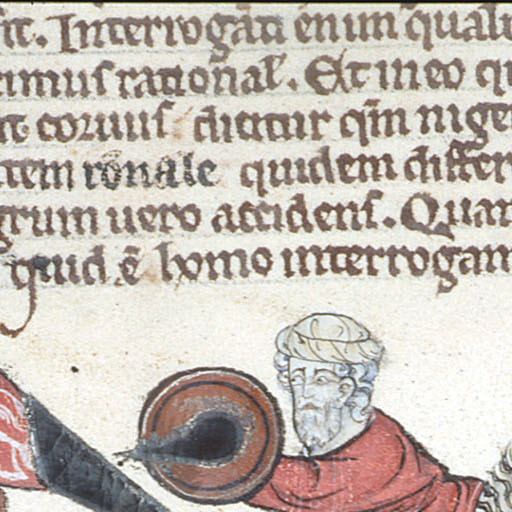 sit. Interrogati enim quali
rimus rationał. Et in eo qu
it coruus dicitur qm̄ niger
tem rōnale quidem differ
grum uero accidens. Quan
quid ē homo interrogam